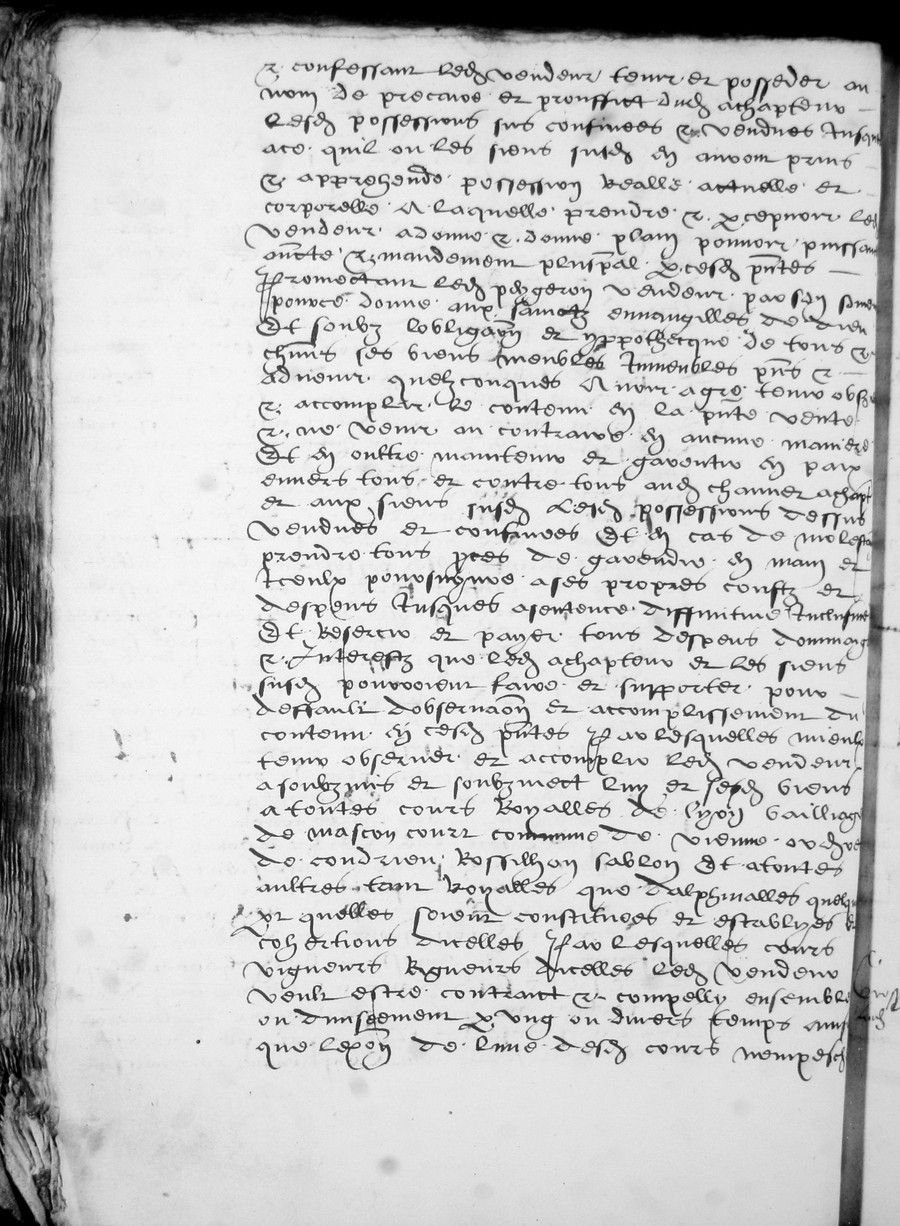 & confessant led vendeur tenir et posseder au
nom de precaire et prouffict dud achapteur
lesd possessions sus confinees & vendues Jusques
ace quil ou les siens susd en auront prins
& apprehende possession Realle actuelle et
corporelle A laquelle prendre & percepuoir led
vendeur a donne & donne plain pouuoir puissan
& mandement special per cesd pntes
Promectant led vendeur par son
pource donne aux sainctz euuangilles de dieu
Et soubz lobligaon et yppothecque de tous &
chuns ses biens meubles Immeubles pns &
aduenir quelzconques Auoir agre tenir obser
& accomplir le contenu en la pnte vente
& ne venir au contraire en aucune maniere
Et en oultre maintenir et garentir en paix
enuers tous et contre tous aud achapt
et aux siens susd lesd possessions dessus
vendues et confinees Et en cas de moleste
prendre tous pces de garendie en main et
Iceulx poursuyure a ses propres coustz et
despens Jusques a sentence diffinitiue Inclusiue
Et Resercir et payer tous despens dommaig
& Interestz que led achapteur et les siens
susd pourroient faire et supporter pour
deffault dobseruaon et accomplissement du
contenu en cesd pntes Par lesquelles mieulx
tenir obseruer et accomplir led vendeur
a soubzmis et soubzmect luy et sesd biens
a toutes cours Royalles de lyon bailliage
de mascon court commune de vienne
de condrieu Rossilhon sablon Et a toutes
aultres tant Royalles que dalphinalles quelq
quelles soient constituees et establyes
cohertions dicelles Par lesquelles cours
vigueurs Rigueurs dicelles led vendeur
veult estre contrainct & compelly ensemble
ou diuisement per ung ou diuers temps ainsi
que lexon de lune desd cours nempesch